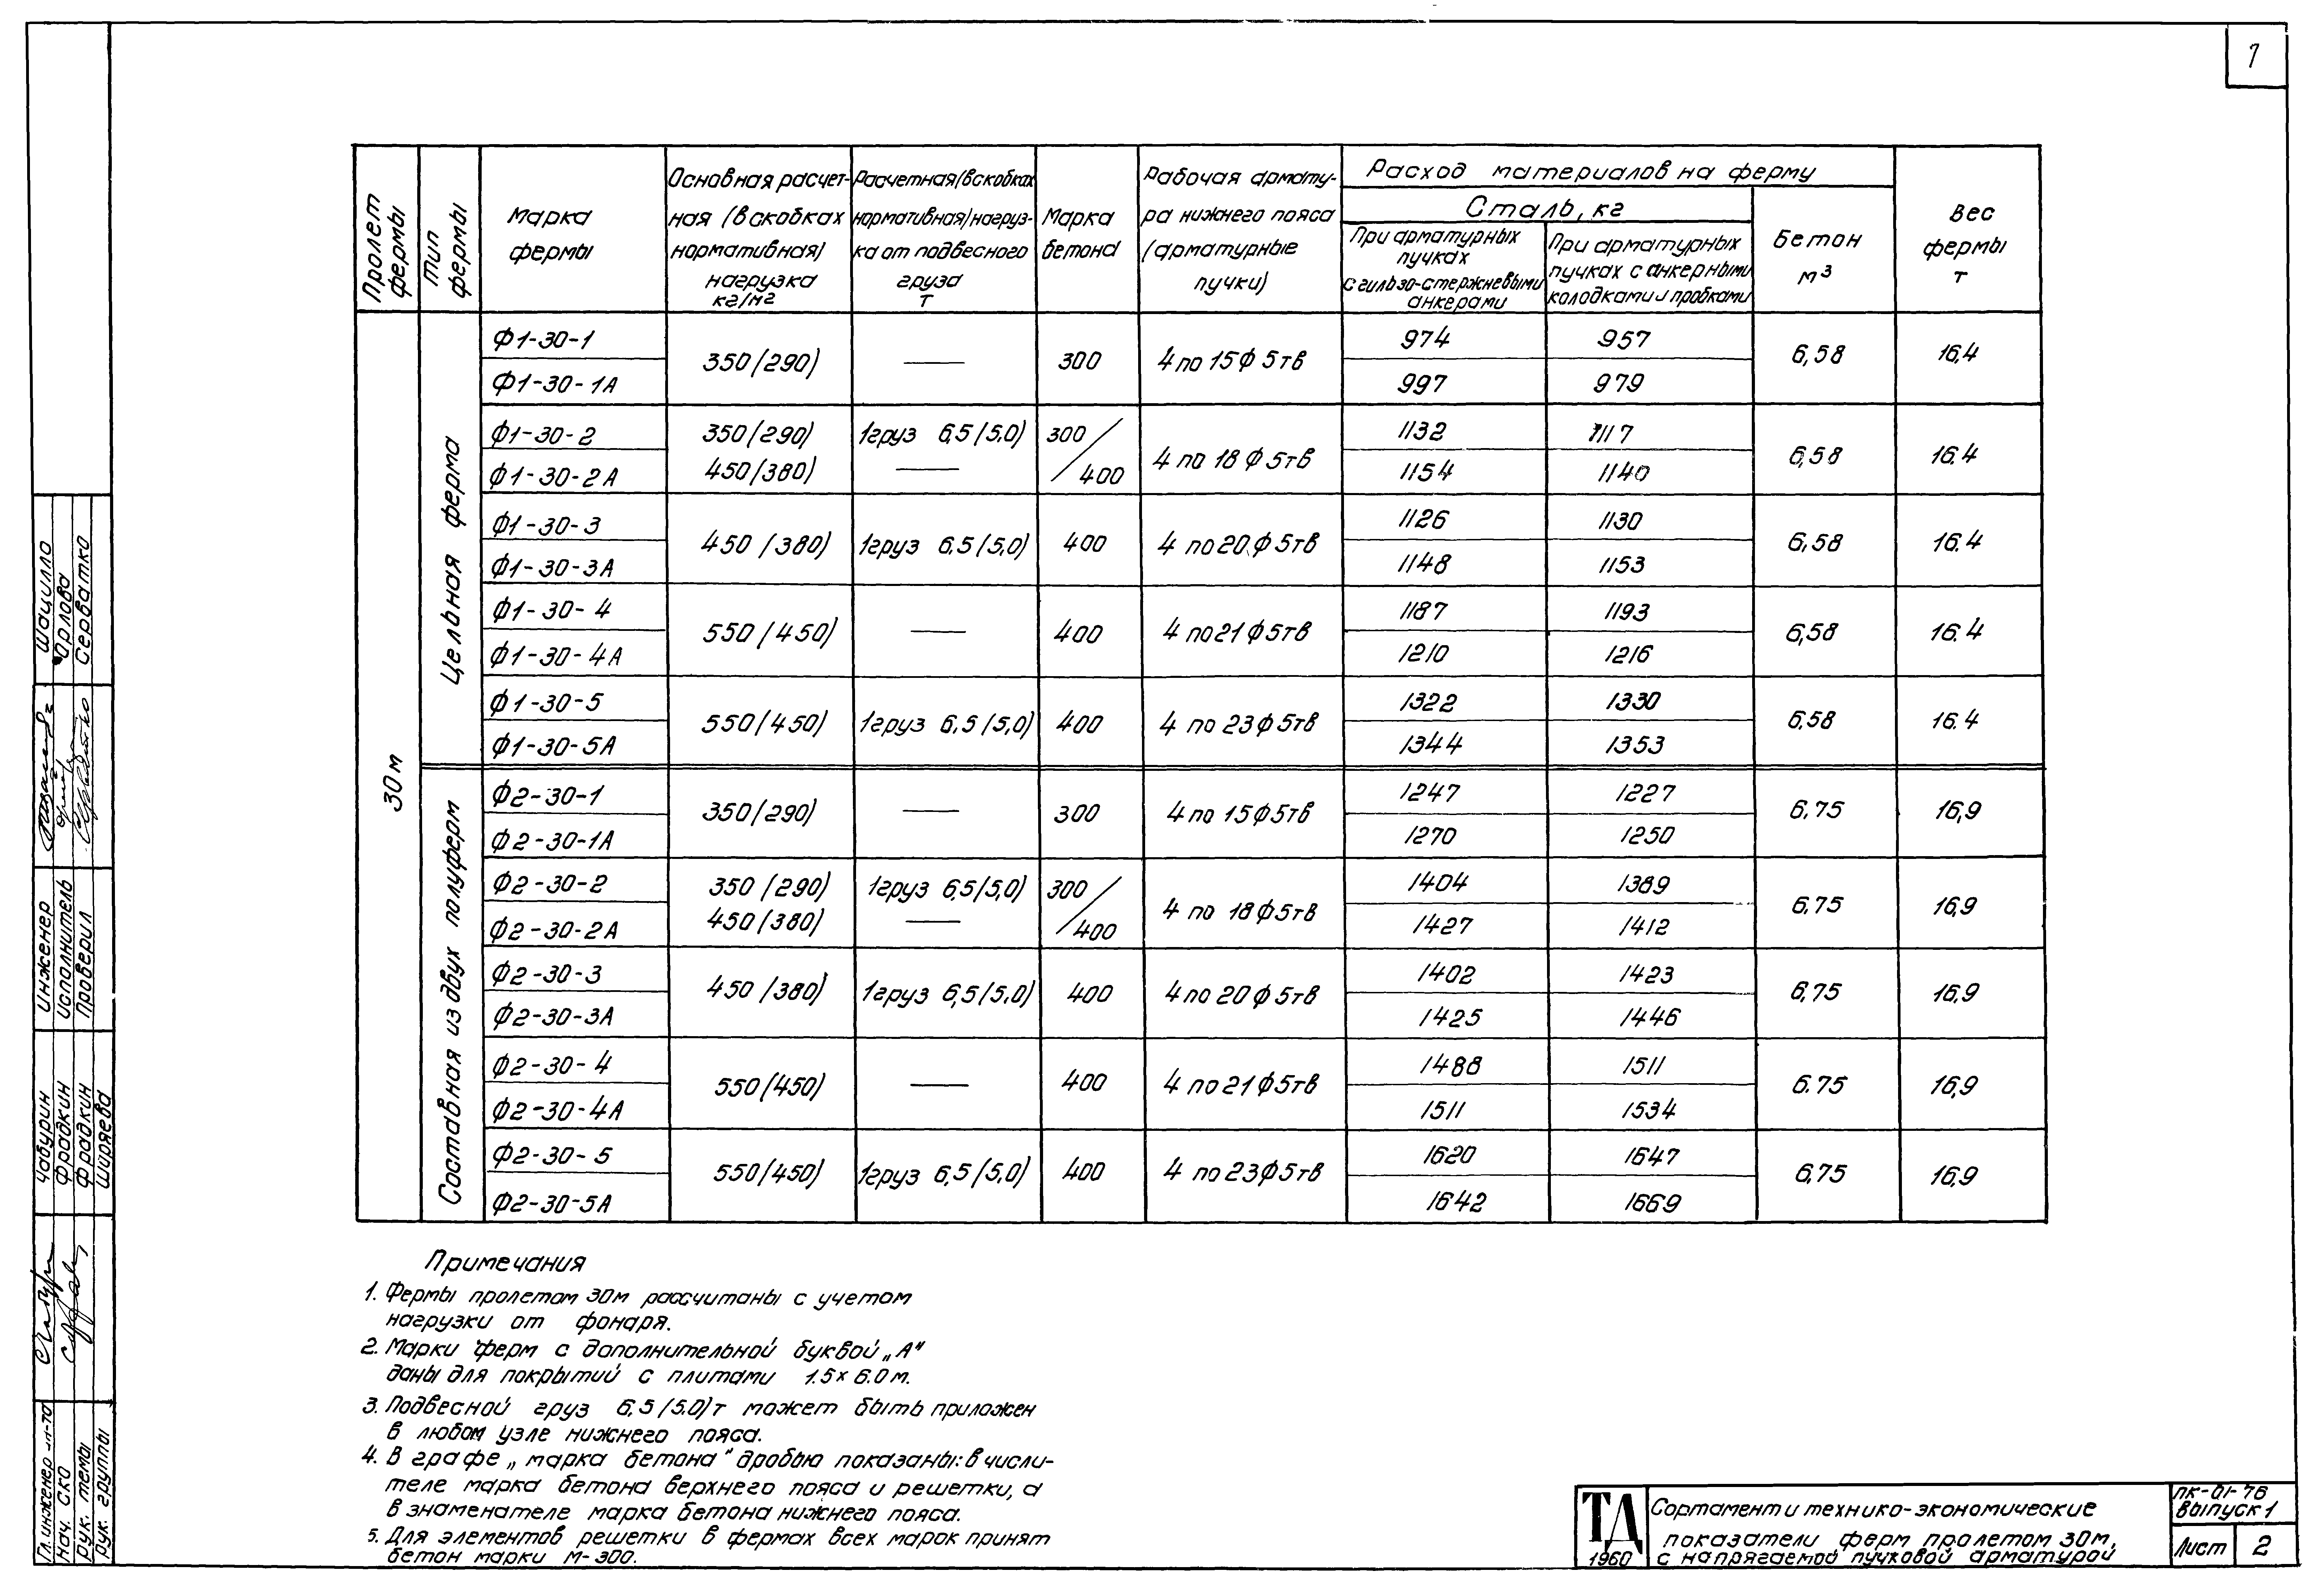 7
Пролет фермы
Тип фермы
Марка фермы
Основная расчет-
ная (в скобках
нормативная)
нагрузка
кг/м²
Расчетная (в скобках
нормативная) нагруз-
ка от подвесного
груза
т
Марка
бетона
Рабочая армату-
ра нижнего пояса
(арматурные
пучки)
Расход материалов на ферму
Сталь, кг
При арматурных
пучках
с гильзо-стержневыми
анкерами
При арматурных
пучках с анкерными
колодками и пробками
Бетон
м³
Вес
фермы
т
30м
Цельная ферма
Ф1-30-1 350/290) — 300 4 по 15ф 5тв 974 957 6,58 16.4
Ф1-30-1А 997 979
Ф1-30-2 350/290) 1груз 6,5/5,0) 300/400 4 по 18ф 5тв 1132 1117 6,58 16.4
Ф1-30-2А 450/380) — 1154 1140
Ф1-30-3 450/380) 1груз 6,5/5,0) 400 4 по 20ф 5тв 1126 1130 6,58 16.4
Ф1-30-3А 1148 1153
Ф1-30-4 550/450) — 400 4 по 21ф 5тв 1187 1193 6,58 16.4
Ф1-30-4А 1210 1216
Ф1-30-5 550/450) 1груз 6,5/5,0) 400 4 по 23ф 5тв 1322 1330 6,58 16.4
Ф1-30-5А 1344 1353
Составная из двух полуферм
Ф2-30-1 350/290) — 300 4 по 15ф 5тв 1247 1227 6.75 16,9
Ф2-30-1А 1270 1250
Ф2-30-2 350/290) 1груз 6,5/5,0) 300/400 4 по 18ф 5тв 1404 1389 6.75 16,9
Ф2-30-2А 450/380) — 1427 1412
Ф2-30-3 450/380) 1груз 6,5/5,0) 400 4 по 20ф 5тв 1402 1423 6,75 16,9
Ф2-30-3А 1425 1446
Ф2-30-4 550/450) — 400 4 по 21ф 5тв 1488 1511 6.75 16,9
Ф2-30-4А 1511 1534
Ф2-30-5 550/450) 1груз 6,5/5,0) 400 4 по 23ф 5тв 1620 1647 6,75 16,9
Ф2-30-5А 1642 1669
Примечания
1. Фермы пролетом 30м рассчитаны с учетом
нагрузки от фонаря.
2. Марки ферм с дополнительной буквой „А"
даны для покрытий с плитами 1.5×6.0м.
3. Подвесной груз 6,5/5.0) т может быть приложен
в любом узле нижнего пояса.
4. В графе „марка бетона" дробью показаны: в числи-
теле марка бетона верхнего пояса и решетки, а
в знаменателе марка бетона нижнего пояса.
5. Для элементов решетки в фермах всех марок принят
бетон марки М-300.
ТД
1960
Сортамент и технико-экономические
показатели ферм пролетом 30м,
с напрягаемой пучковой арматурой
ПК-01-76
Выпуск 1
Лист 2
Гл. инженер ин-та Чабурин Инженер Шацилло
Нач. СКО Фрадкин Исполнитель Орлова
Рук. темы Фрадкин Проверил Серватко
Рук. группы Шоряева